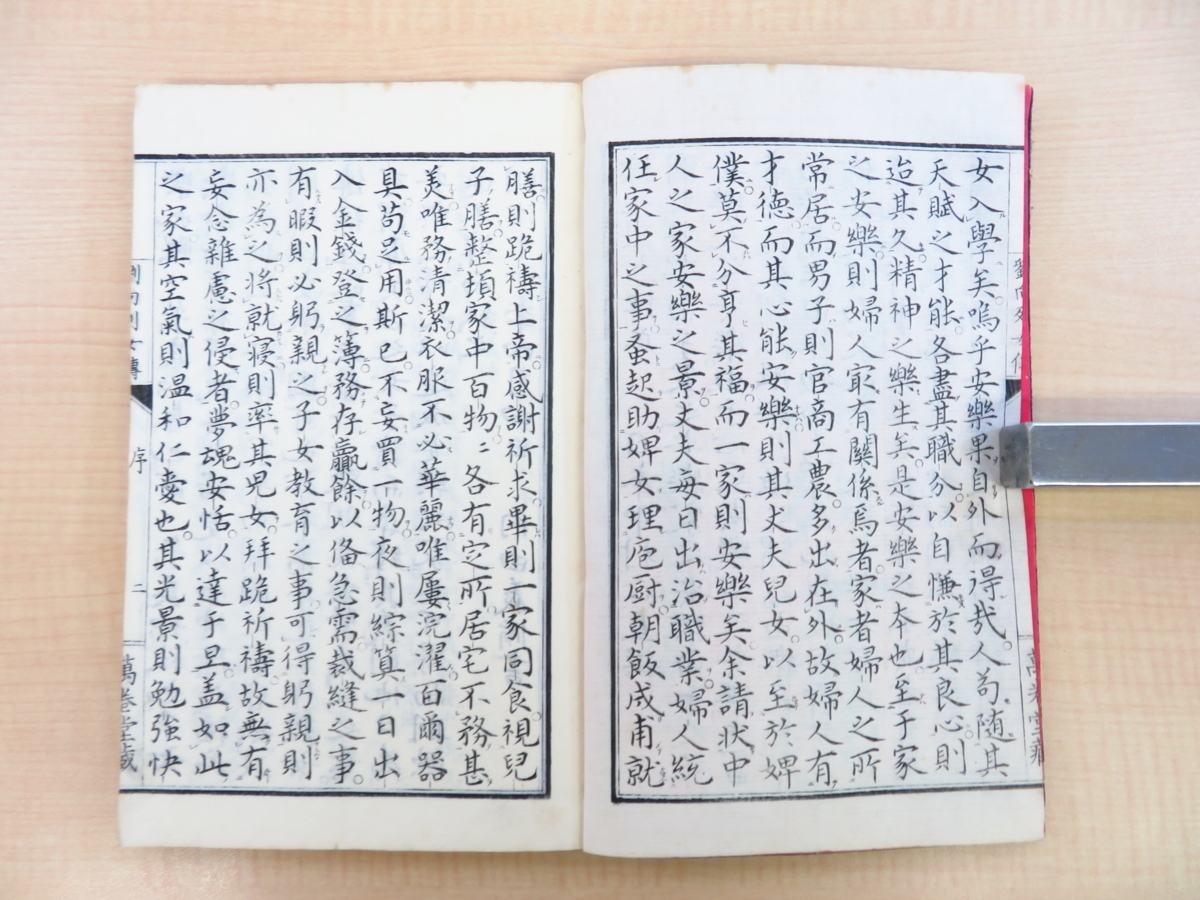 女入學矣嗚乎安樂果自外而得哉人苟随其
天賦之才能各盡其職分以自慊於其良心則
迨其久精神之樂生矣是安樂之本也至于家
之安樂則婦人㝡有關係焉者家者婦人之所
常居而男子則官商工農多出在外故婦人有
才德而其心能安樂則其丈夫兒女以至於婢
僕莫不分享其福而一家則安樂矣余請状中
人之家安樂之景丈夫每日出治職業婦人統
任家中之事蚤起助婢女理庖厨朝飯成甫就
膳則跪禱上帝感謝祈求畢則一家同食視兒
子膳整頓家中百物〻各有定所居宅不務甚
美唯務清潔衣服不必華麗唯屢浣濯百爾器
具苟足用斯已不妄買一物夜則綜算一日出
入金錢登之簿務存贏餘以俻急需裁縫之事
有暇則必躬親之子女教育之事可得躬親則
亦為之将就寝則率其児女拜跪祈禱故無有
妄念雜慮之侵者夢魂安恬以達于旦盖如此
之家其空氣則温和仁愛也其光景則勉強快
劉向列女傳
序
二
萬卷堂藏